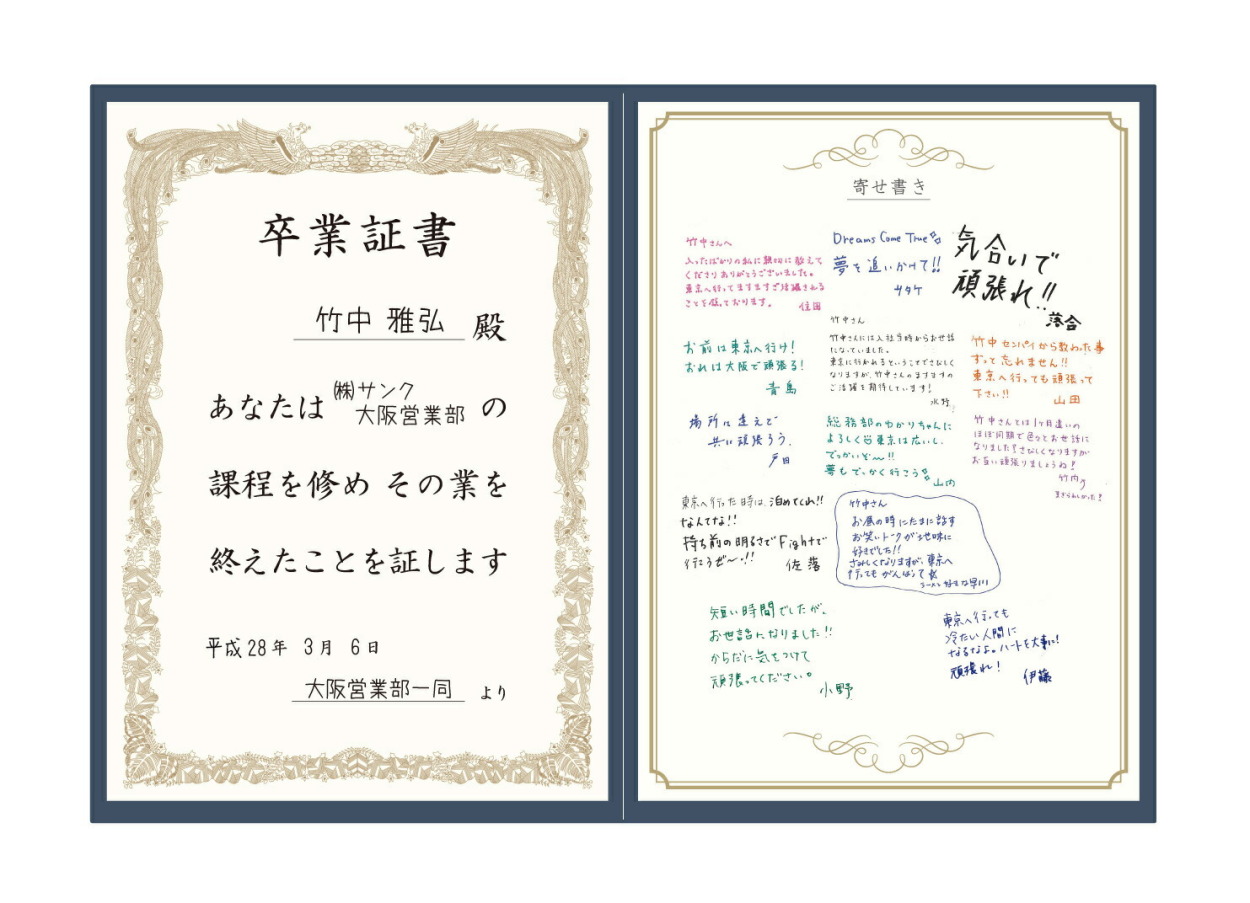 卒業証書
竹中 雅弘 殿
あなたは ㈱サンク 大阪営業部 の
課程を修め その業を
終えたことを証します
平成28年 3月 6日
大阪営業部一同 より
寄せ書き
竹中さんへ
入ったばかりの私に親切に教えて
くださりありがとうございました。
東京へ行ってますますご活躍される
ことを祈っております。
住田
Dreams Come True
夢を追いかけて!!
サタケ
気合いで
頑張れ!!
落合
お前は東京へ行け!
おれは大阪で頑張る!
青島
竹中さん
竹中さんには入社当時からお世話
になっていました。
東京に行かれるということでさびしく
なりますが、竹中さんのますますの
ご活躍を期待しています!
水野
竹中センパイから教わった事
ずって忘れません!!
東京へ行っても頑張って
下さい!!
山田
場所は違えど
共に頑張ろう。
戸田
総務部のゆかりちゃんに
よろしく 東京は広いし、
でっかいぞ〜!!
夢もでっかく行こう
山内
竹中さんとは1ヶ月違いの
ほぼ同期で色々とお世話に
なりました!さびしくなりますが
お互い頑張りましょうね!
竹内
東京へ行った時は、泊めてくれ!!
なんてな!!
持ち前の明るさでFightで
行こうぜ〜!!
佐落
竹中さん
お昼の時にたまに話す
お笑いトークが地味に
好きでした!!
さみしくなりますが、東京へ
行ってもがんばって
ラーメン好きな早川
短い時間でしたが、
お世話になりました!!
からだに気をつけて
頑張ってください。
小野
東京へ行っても
冷たい人間に
なるなよ。ハートを大事に!
頑張れ!
伊藤